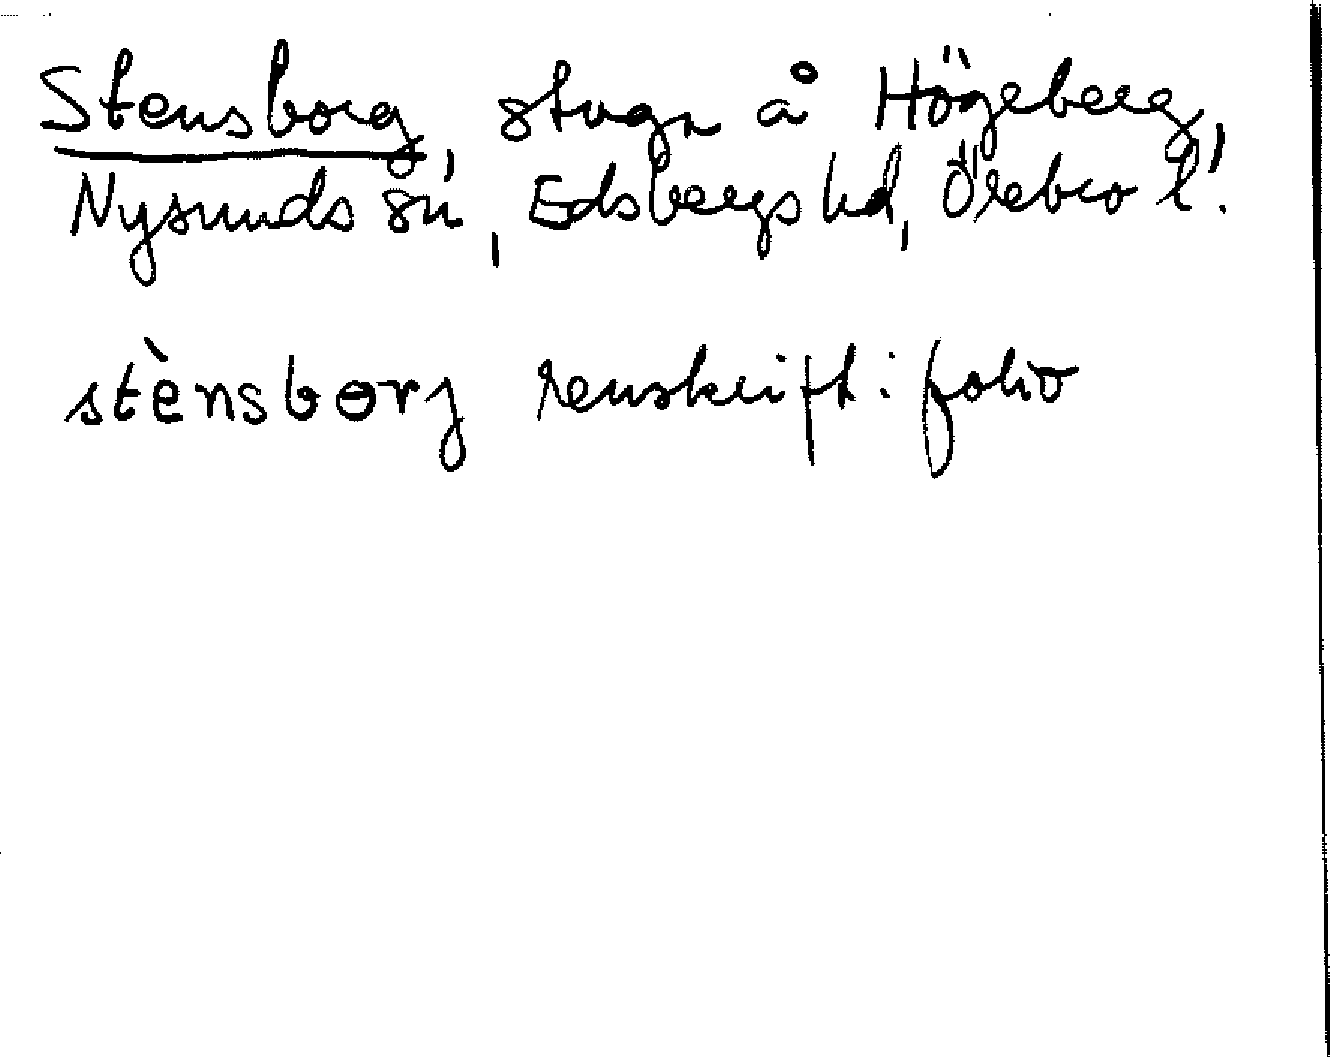 Stensborg, stuga å Högeberg,
Nysunds sn, Edsbergs hd, Örebro l.
stènsbɵrj renskrift: folio